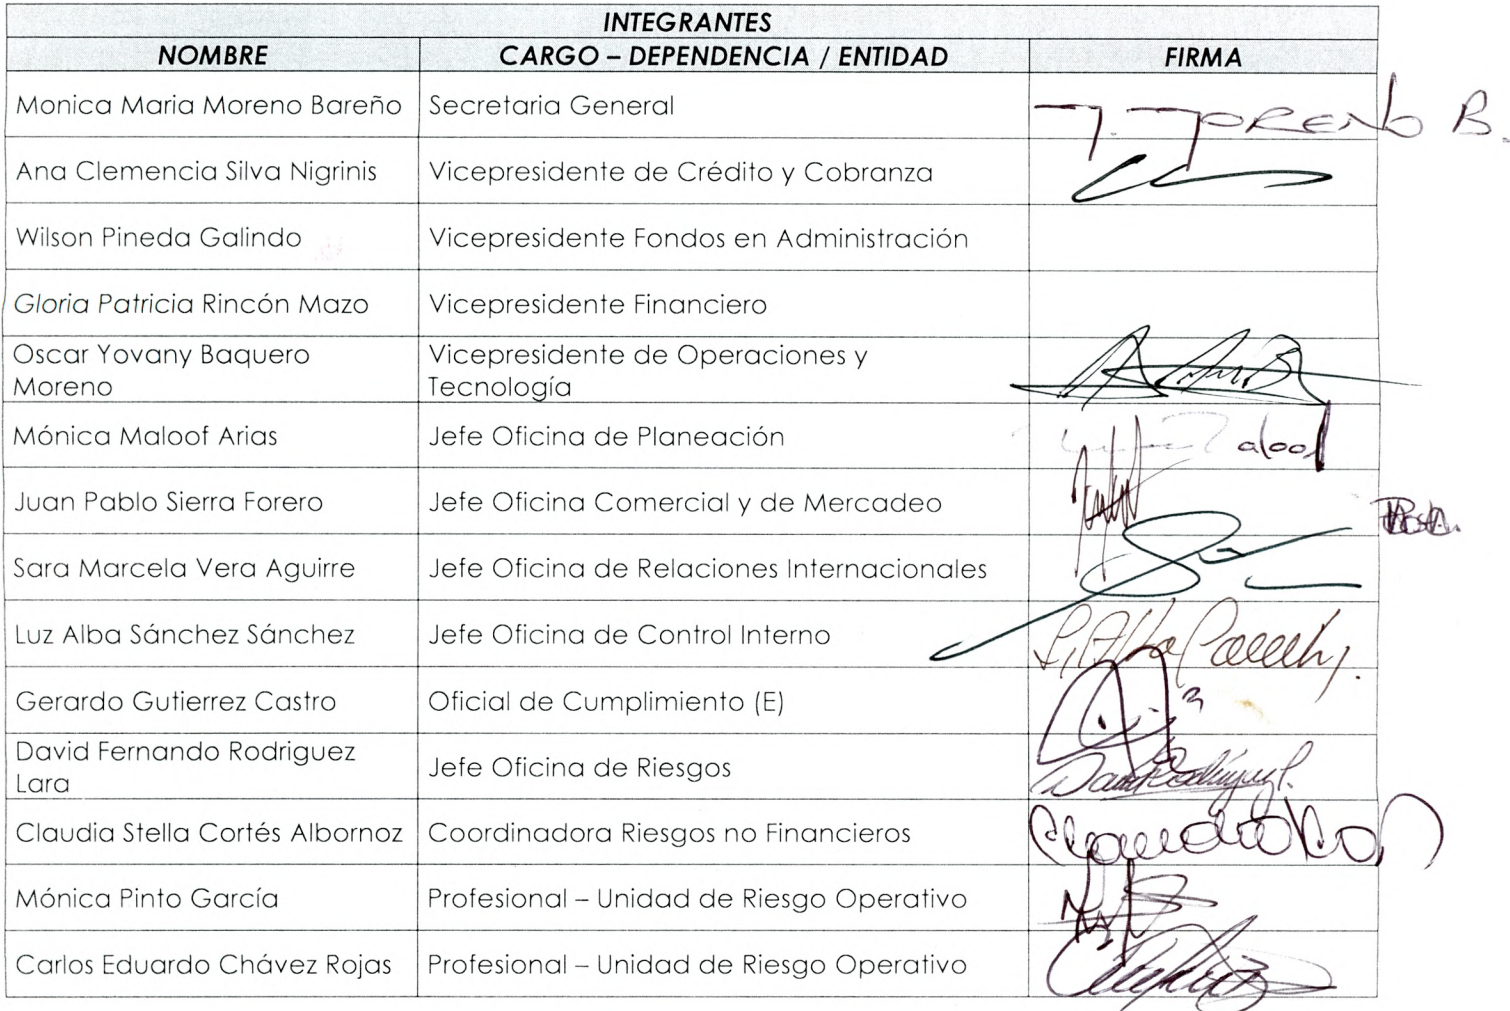 INTEGRANTES
NOMBRE CARGO – DEPENDENCIA / ENTIDAD FIRMA
Monica Maria Moreno Bareño Secretaria General MORENO B.
Ana Clemencia Silva Nigrinis Vicepresidente de Crédito y Cobranza
Wilson Pineda Galindo Vicepresidente Fondos en Administración
Gloria Patricia Rincón Mazo Vicepresidente Financiero
Oscar Yovany Baquero Vicepresidente de Operaciones y
Moreno Tecnología
Mónica Maloof Arias Jefe Oficina de Planeación
Juan Pablo Sierra Forero Jefe Oficina Comercial y de Mercadeo
Sara Marcela Vera Aguirre Jefe Oficina de Relaciones Internacionales
Luz Alba Sánchez Sánchez Jefe Oficina de Control Interno
Gerardo Gutierrez Castro Oficial de Cumplimiento (E)
David Fernando Rodriguez
Lara Jefe Oficina de Riesgos
Claudia Stella Cortés Albornoz Coordinadora Riesgos no Financieros
Mónica Pinto García Profesional – Unidad de Riesgo Operativo
Carlos Eduardo Chávez Rojas Profesional – Unidad de Riesgo Operativo